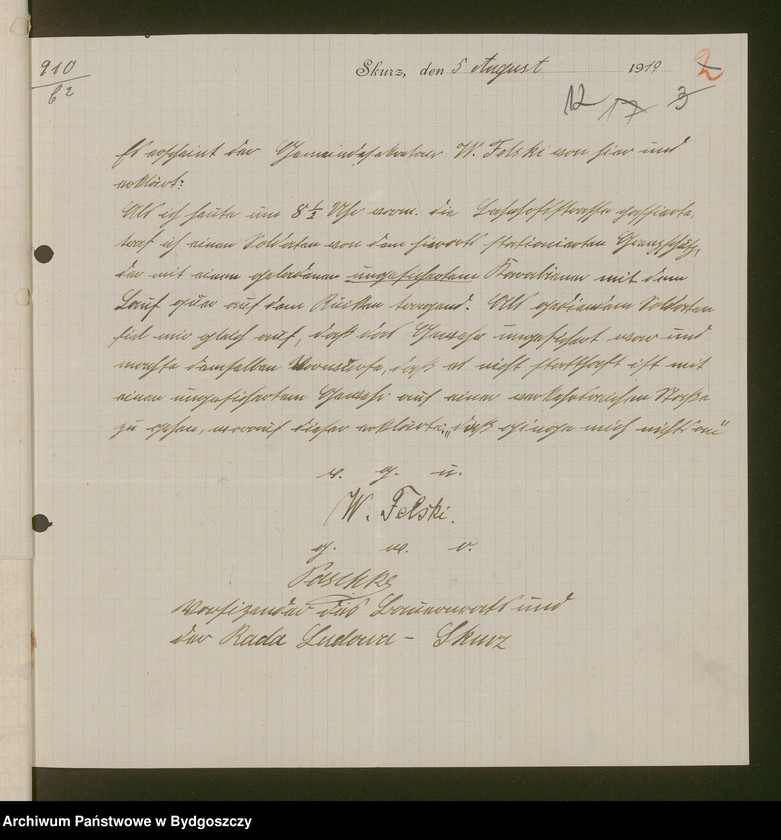 910
Skurz, den 5 August 1919
2
12 17 3
Es erscheint der Gemeindesekretär W. Felski von hier und
erklärt:
Als ich heute um 8 ½ Uhr vorm. die Bahnhofstrasse passierte,
traf ich einen Soldaten von dem hierorts stationierten Grenzschutz,
der mit einem geladenen ungesicherten Karabiner mit dem
Lauf quer auf dem Rücken tragend. Als gedienten Soldaten
fiel mir gleich auf, daß das Gewehr ungesichert war und
machte demselben Vorwürfe, daß es nicht statthaft ist mit
einem ungesicherten Gewehr auf einer verkehrsreichen Straße
zu gehen, worauf dieser erklärte: „das ginge mich nichts an"
v. g. u.
W. Felski.
g. w. o.
Paschke
Vorsizender des Bauernrats und
der Rada Ludowa - Skurz
Archiwum Państwowe w Bydgoszczy